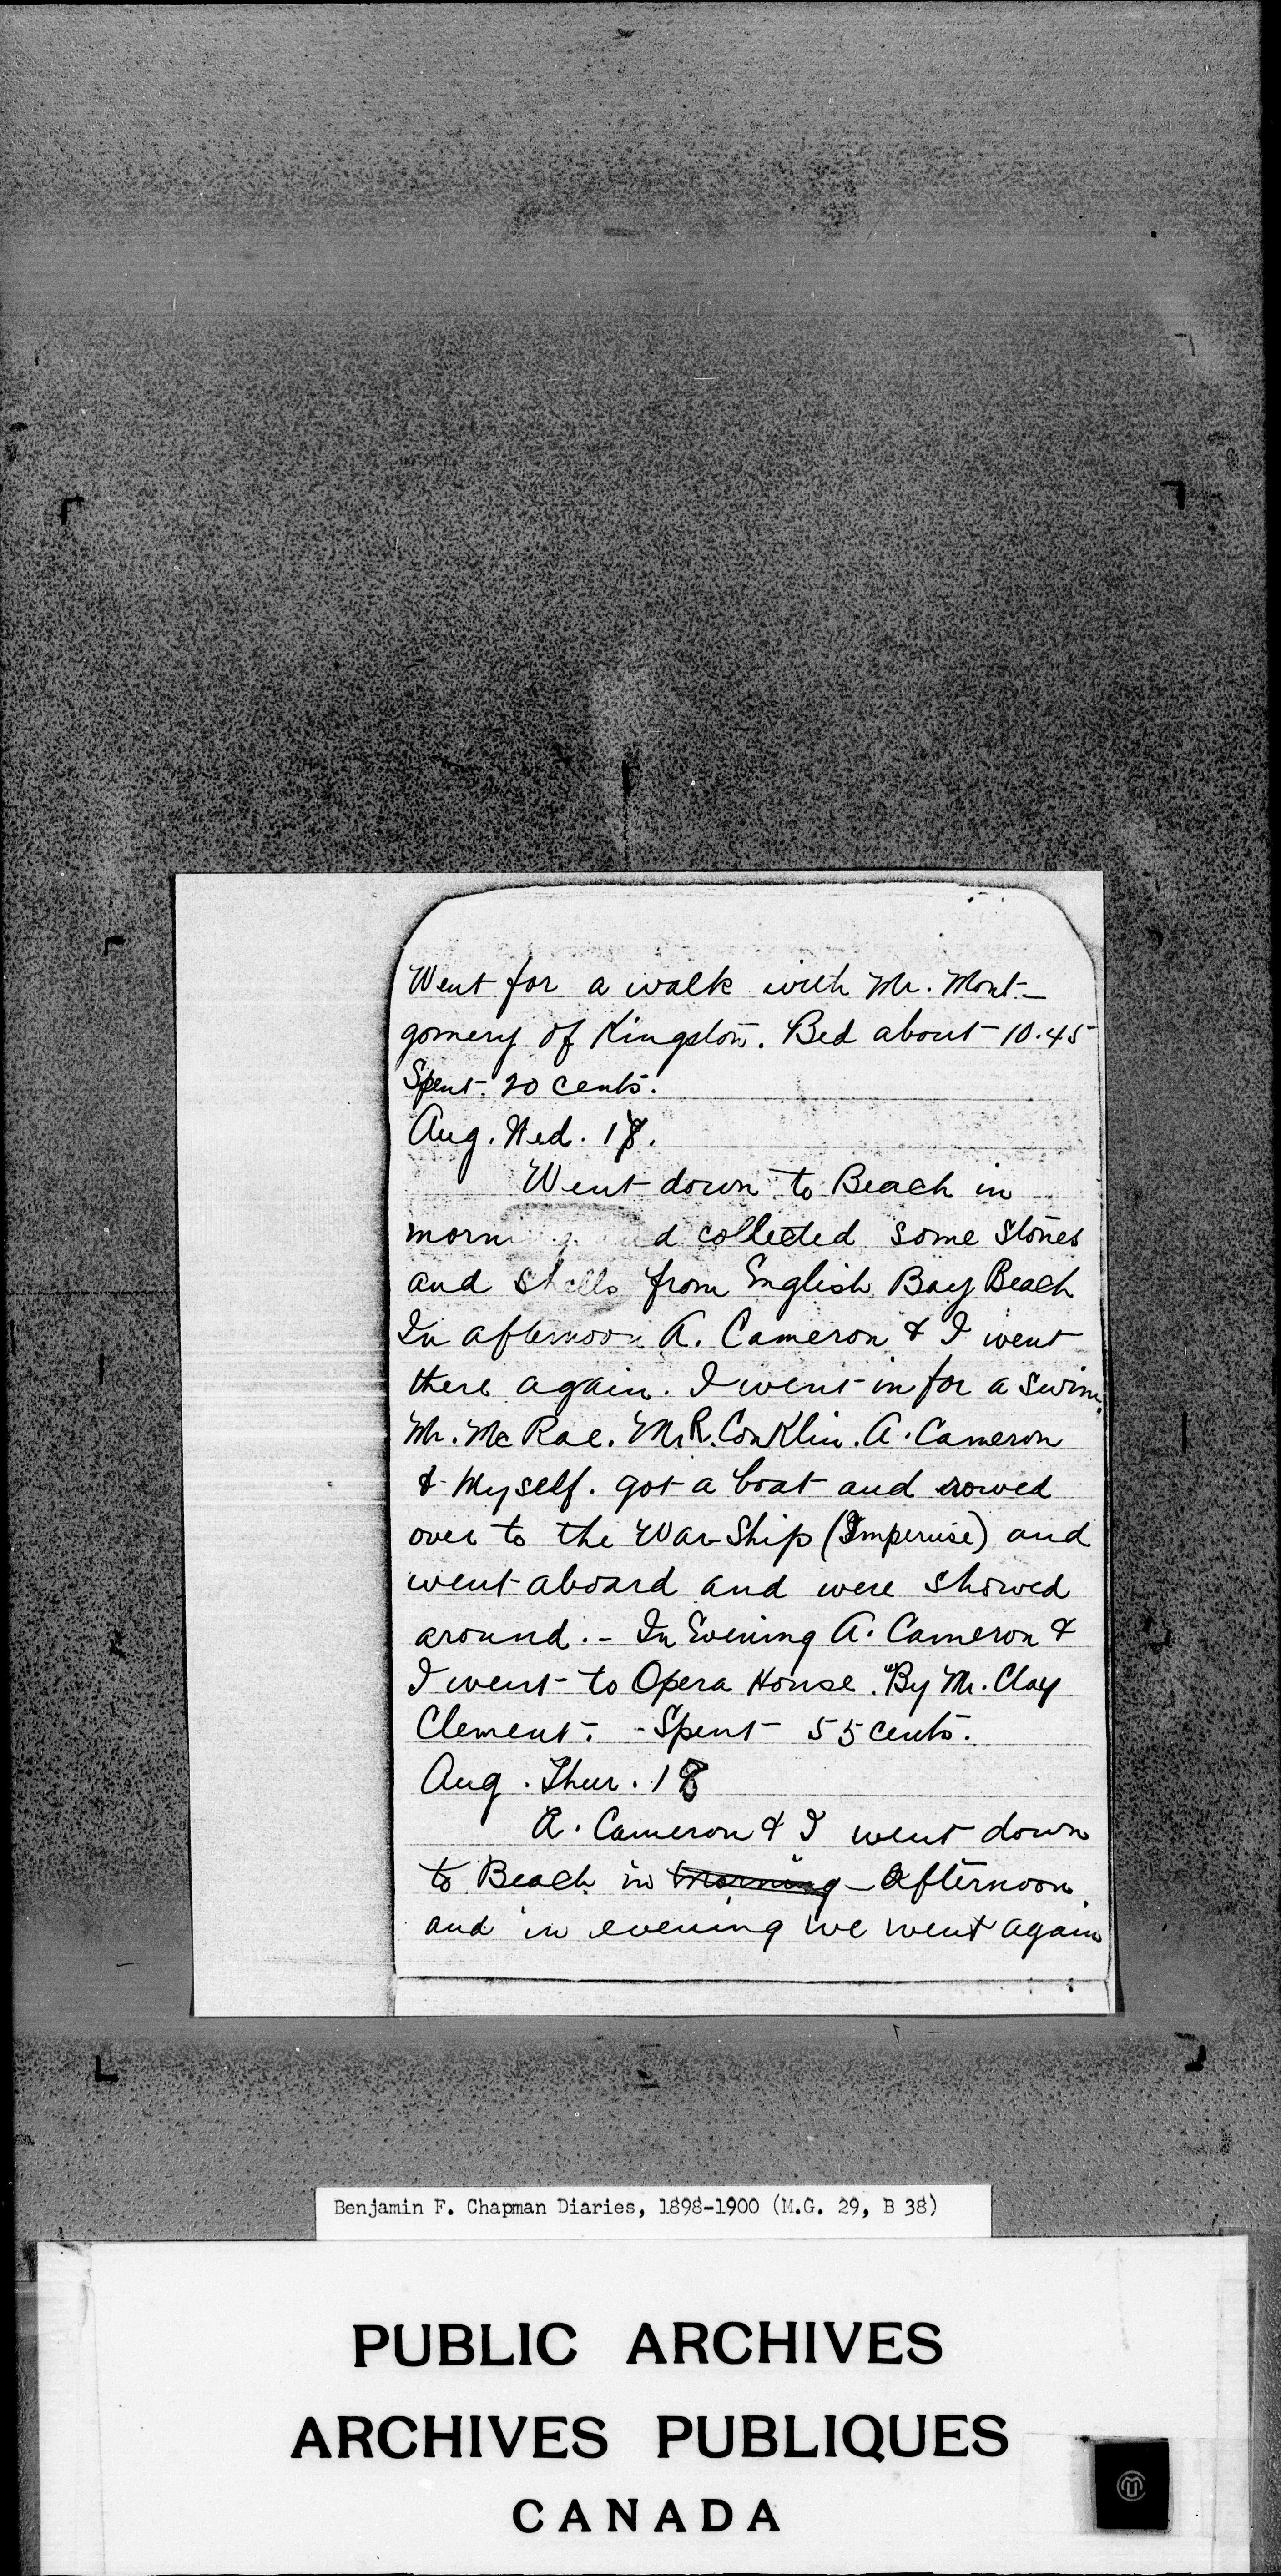 Went for a walk with Mr. Mont-
gomery of Kingston. Bed about 10.45
Spent. 20 cents.
Aug. Wed. 17.
Went down to Beach in
morning and collected some stones
and shells from English Bay Beach
In afternoon A. Cameron & I went
there again. I went in for a swim.
Mr. McRae. Mr. R. Conklin. A. Cameron
& Myself. got a boat and rowed
over to the War Ship (Imperuise) and
went aboard and were showed
around. - In Evening A. Cameron &
I went to Opera House. "By Mr. Clay
Clement. - Spent 55 cents.
Aug. Thur. 18
A. Cameron & I went down
to Beach in morning - Afternoon.
and in evening we went again
Benjamin F. Chapman Diaries, 1898-1900 (M.G. 29, B 38)
PUBLIC ARCHIVES
ARCHIVES PUBLIQUES
CANADA